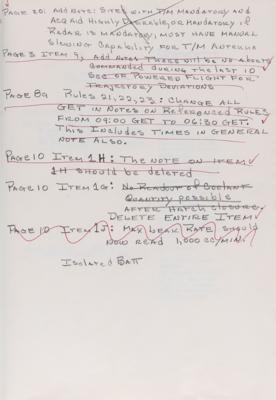 Page 20: Add Note: Sites with T/M Mandatory and
Acq Aid Highly Desirable, or Mandatory if
Radar is Mandatory, must have manual
slewing capability for T/M antenna
Page 3 Item 9, Add Note: There will be no Aborts
commanded during the last 10
sec of powered flight for
trajectory deviations
Page 8a Rules 21,22,23: Change all
GET in notes on referenced rules
from 09:00 GET to 06:30 GET.
This includes times in General
note also.
Page 10 Item 1H: The note on item
1H should be deleted
Page 10 Item 1G: No Readout of Coolant
Quantity possible
after hatch closure.
Delete entire item
Page 10 Item 1J: Max leak rate should
now read 1,000 cc/min.
Isolated Batt